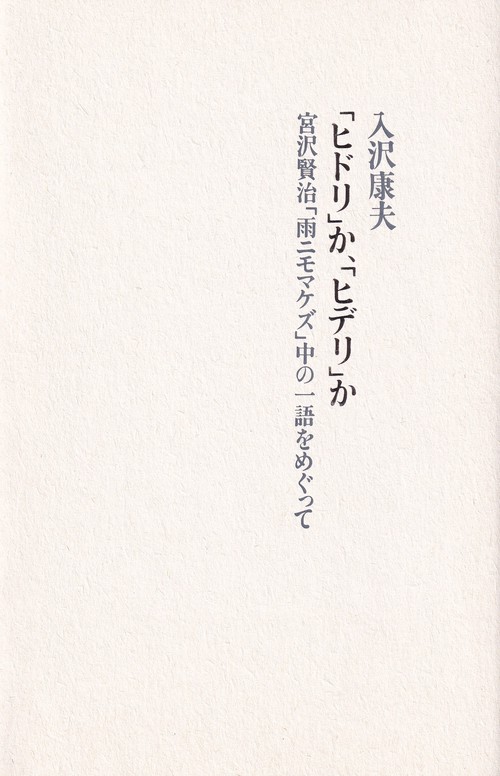 入沢康夫
「ヒドリ」か、「ヒデリ」か
宮沢賢治「雨ニモマケズ」中の一語をめぐって